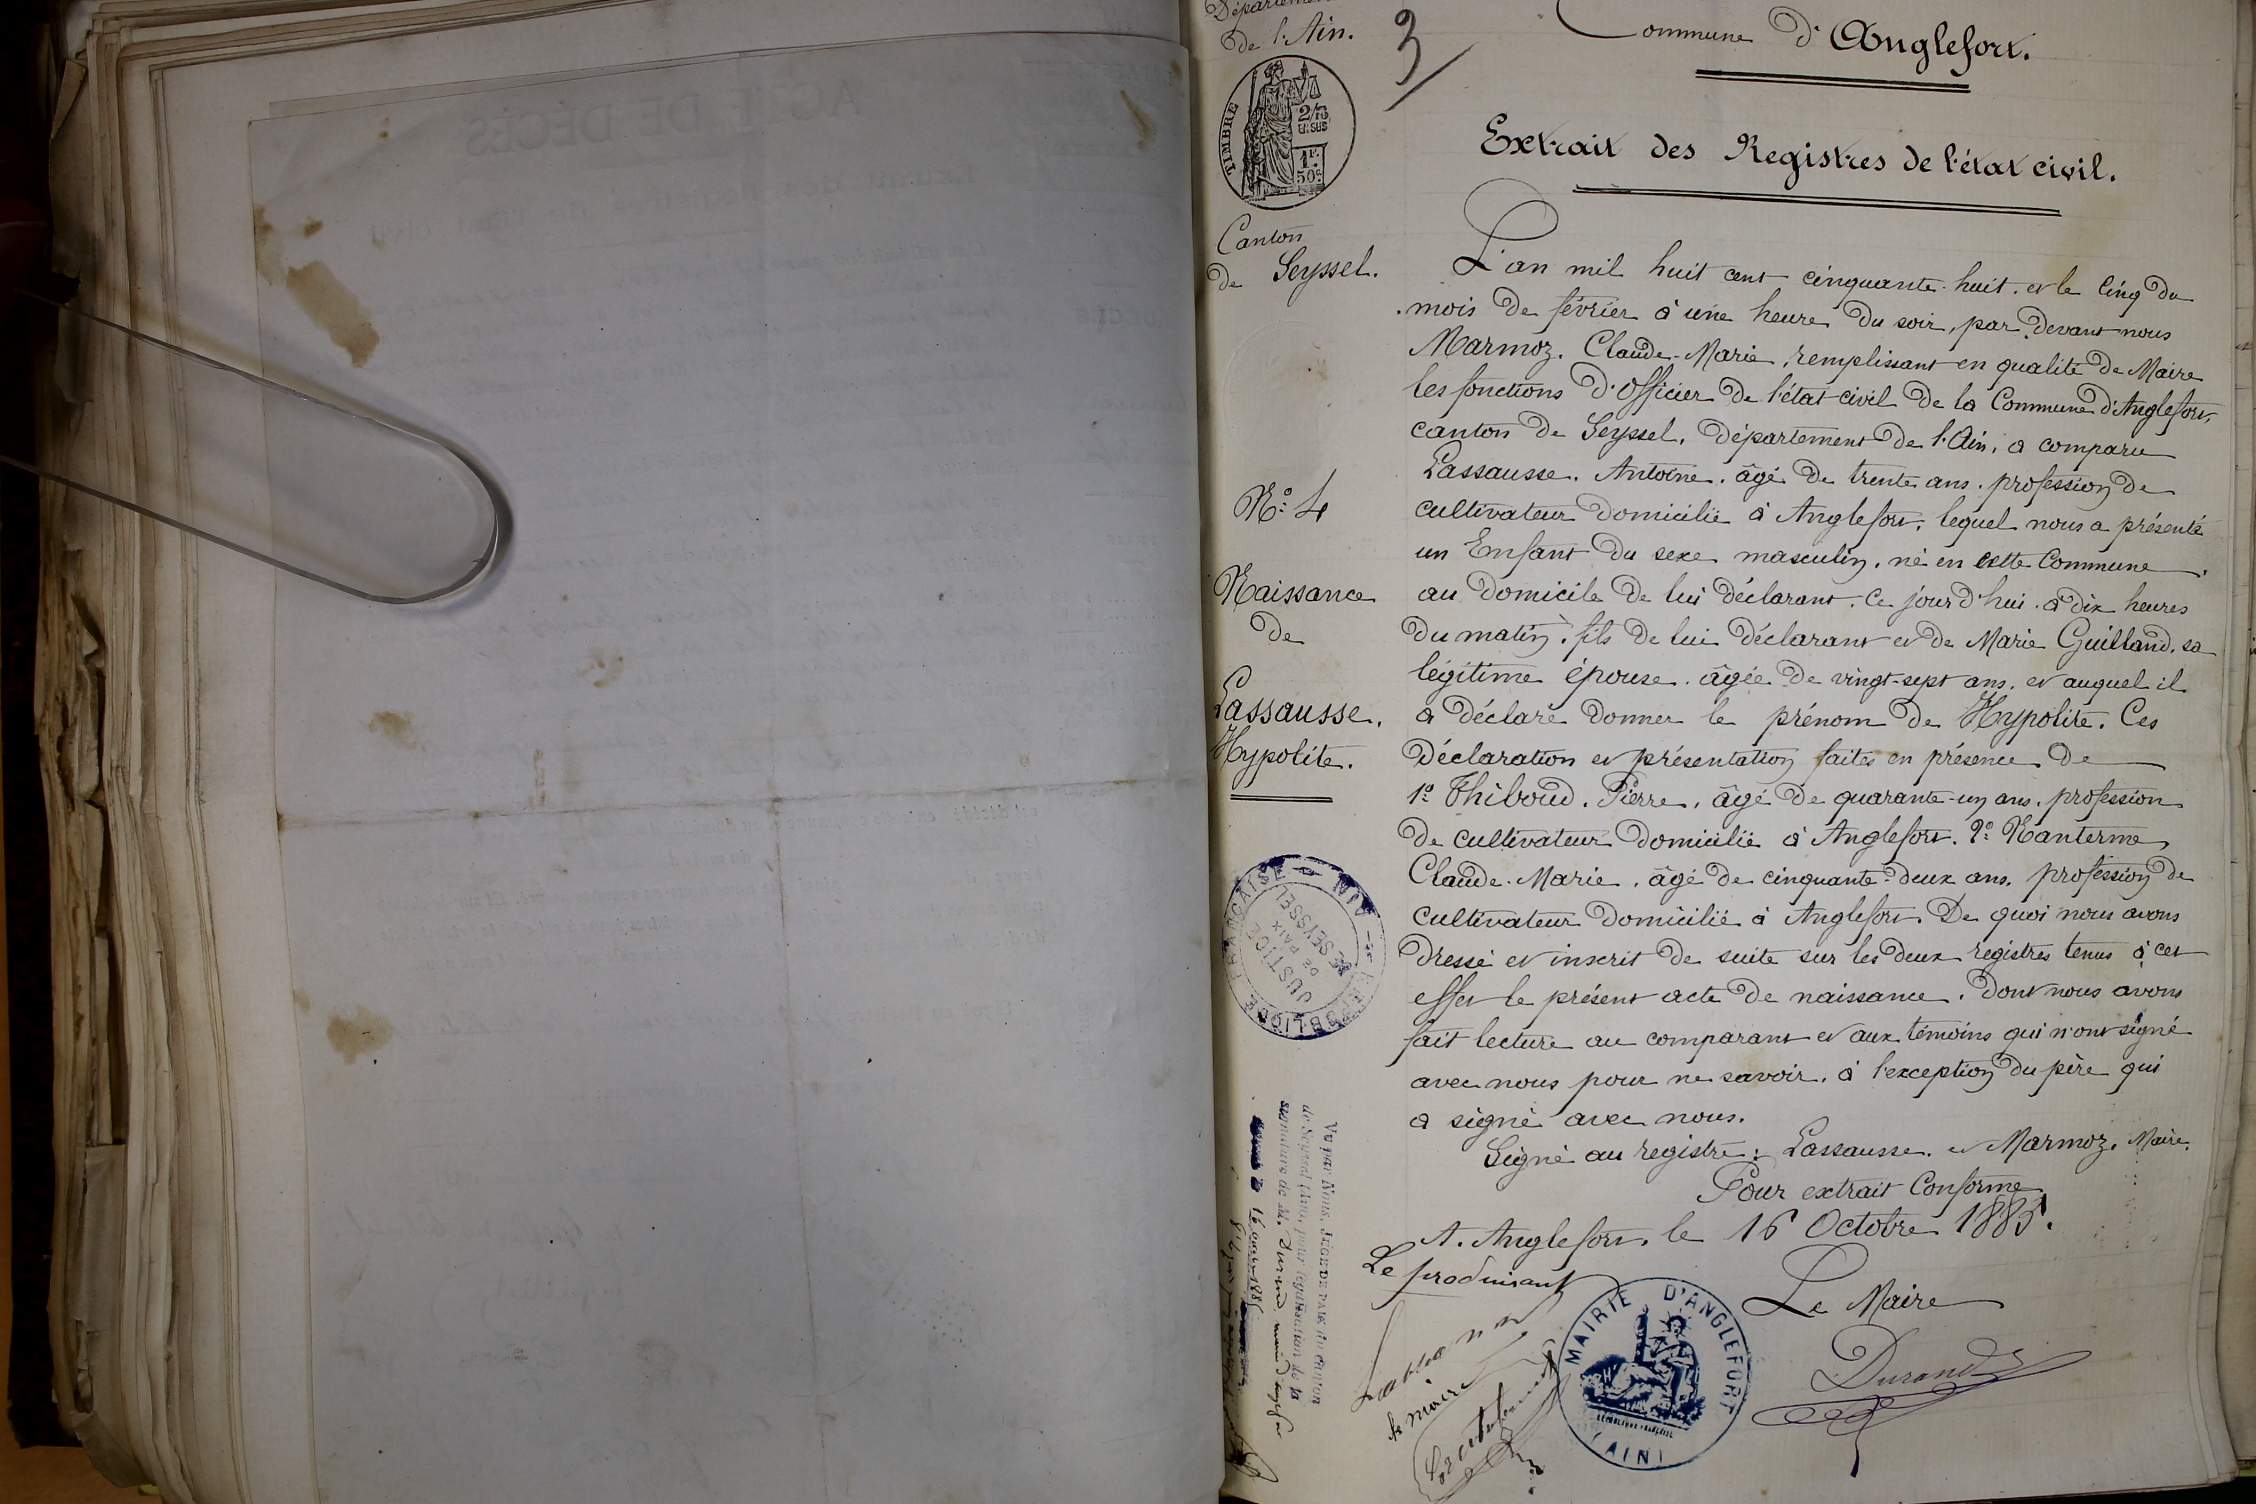 Département
de l'Ain.
3
TIMBRE
2/10
EN SUS
1F.
50c
Canton
de Seyssel.
N° 4
Naissance
de
Lassausse.
Hypolite.
RÉPUBLIQUE FRANÇAISE - AIN -
JUSTICE
DE PAIX
DE SEYSSEL
Vu par Nous, JUGE DE PAIX du canton
de Seyssel (Ain), pour légalisation de la
signature de M. Durand, maire d'Anglefort
Commune d'Anglefort.
Extrait des Registres de l'état civil.
L'an mil huit cent cinquante-huit. et le cinq du
mois de février à une heure du soir, par devant nous
Marmoz. Claude-Marie, remplissant en qualité de Maire
les fonctions d'officier de l'état-civil de la Commune d'Anglefort,
canton de Seyssel, département de l'Ain, a comparu
Lassausse. Antoine. âgé de trente ans. profession de
cultivateur domicilié à Anglefort, lequel nous a présenté
un Enfant du sexe masculin, né en cette Commune
au domicile de lui déclarant. Ce jourd'hui à dix heures
du matin, fils de lui déclarant et de Marie Guilland, sa
légitime épouse. âgée de vingt-sept ans, et auquel il
a déclaré donner le prénom de Hypolite. Ces
déclaration et présentation faites en présence de
1° Thiboud. Pierre, âgé de quarante-un ans, profession
de cultivateur domicilié à Anglefort. 2° Nanterme
Claude-Marie, âgé de cinquante-deux ans, profession de
cultivateur domicilié à Anglefort. De quoi nous avons
dressé et inscrit de suite sur les deux registres tenus à cet
effet le présent acte de naissance. Dont nous avons
fait lecture au comparant et aux témoins qui n'ont signé
avec nous pour ne savoir, à l'exception du père qui
a signé avec nous.
Signé au registre: Lassausse. et Marmoz. Maire.
Pour extrait Conforme
A. Anglefort, le 16 Octobre 1885.
Le produisant
Le Maire
le maire
Durand
MAIRIE D'ANGLEFORT
RÉPUBLIQUE FRANÇAISE
(AIN)